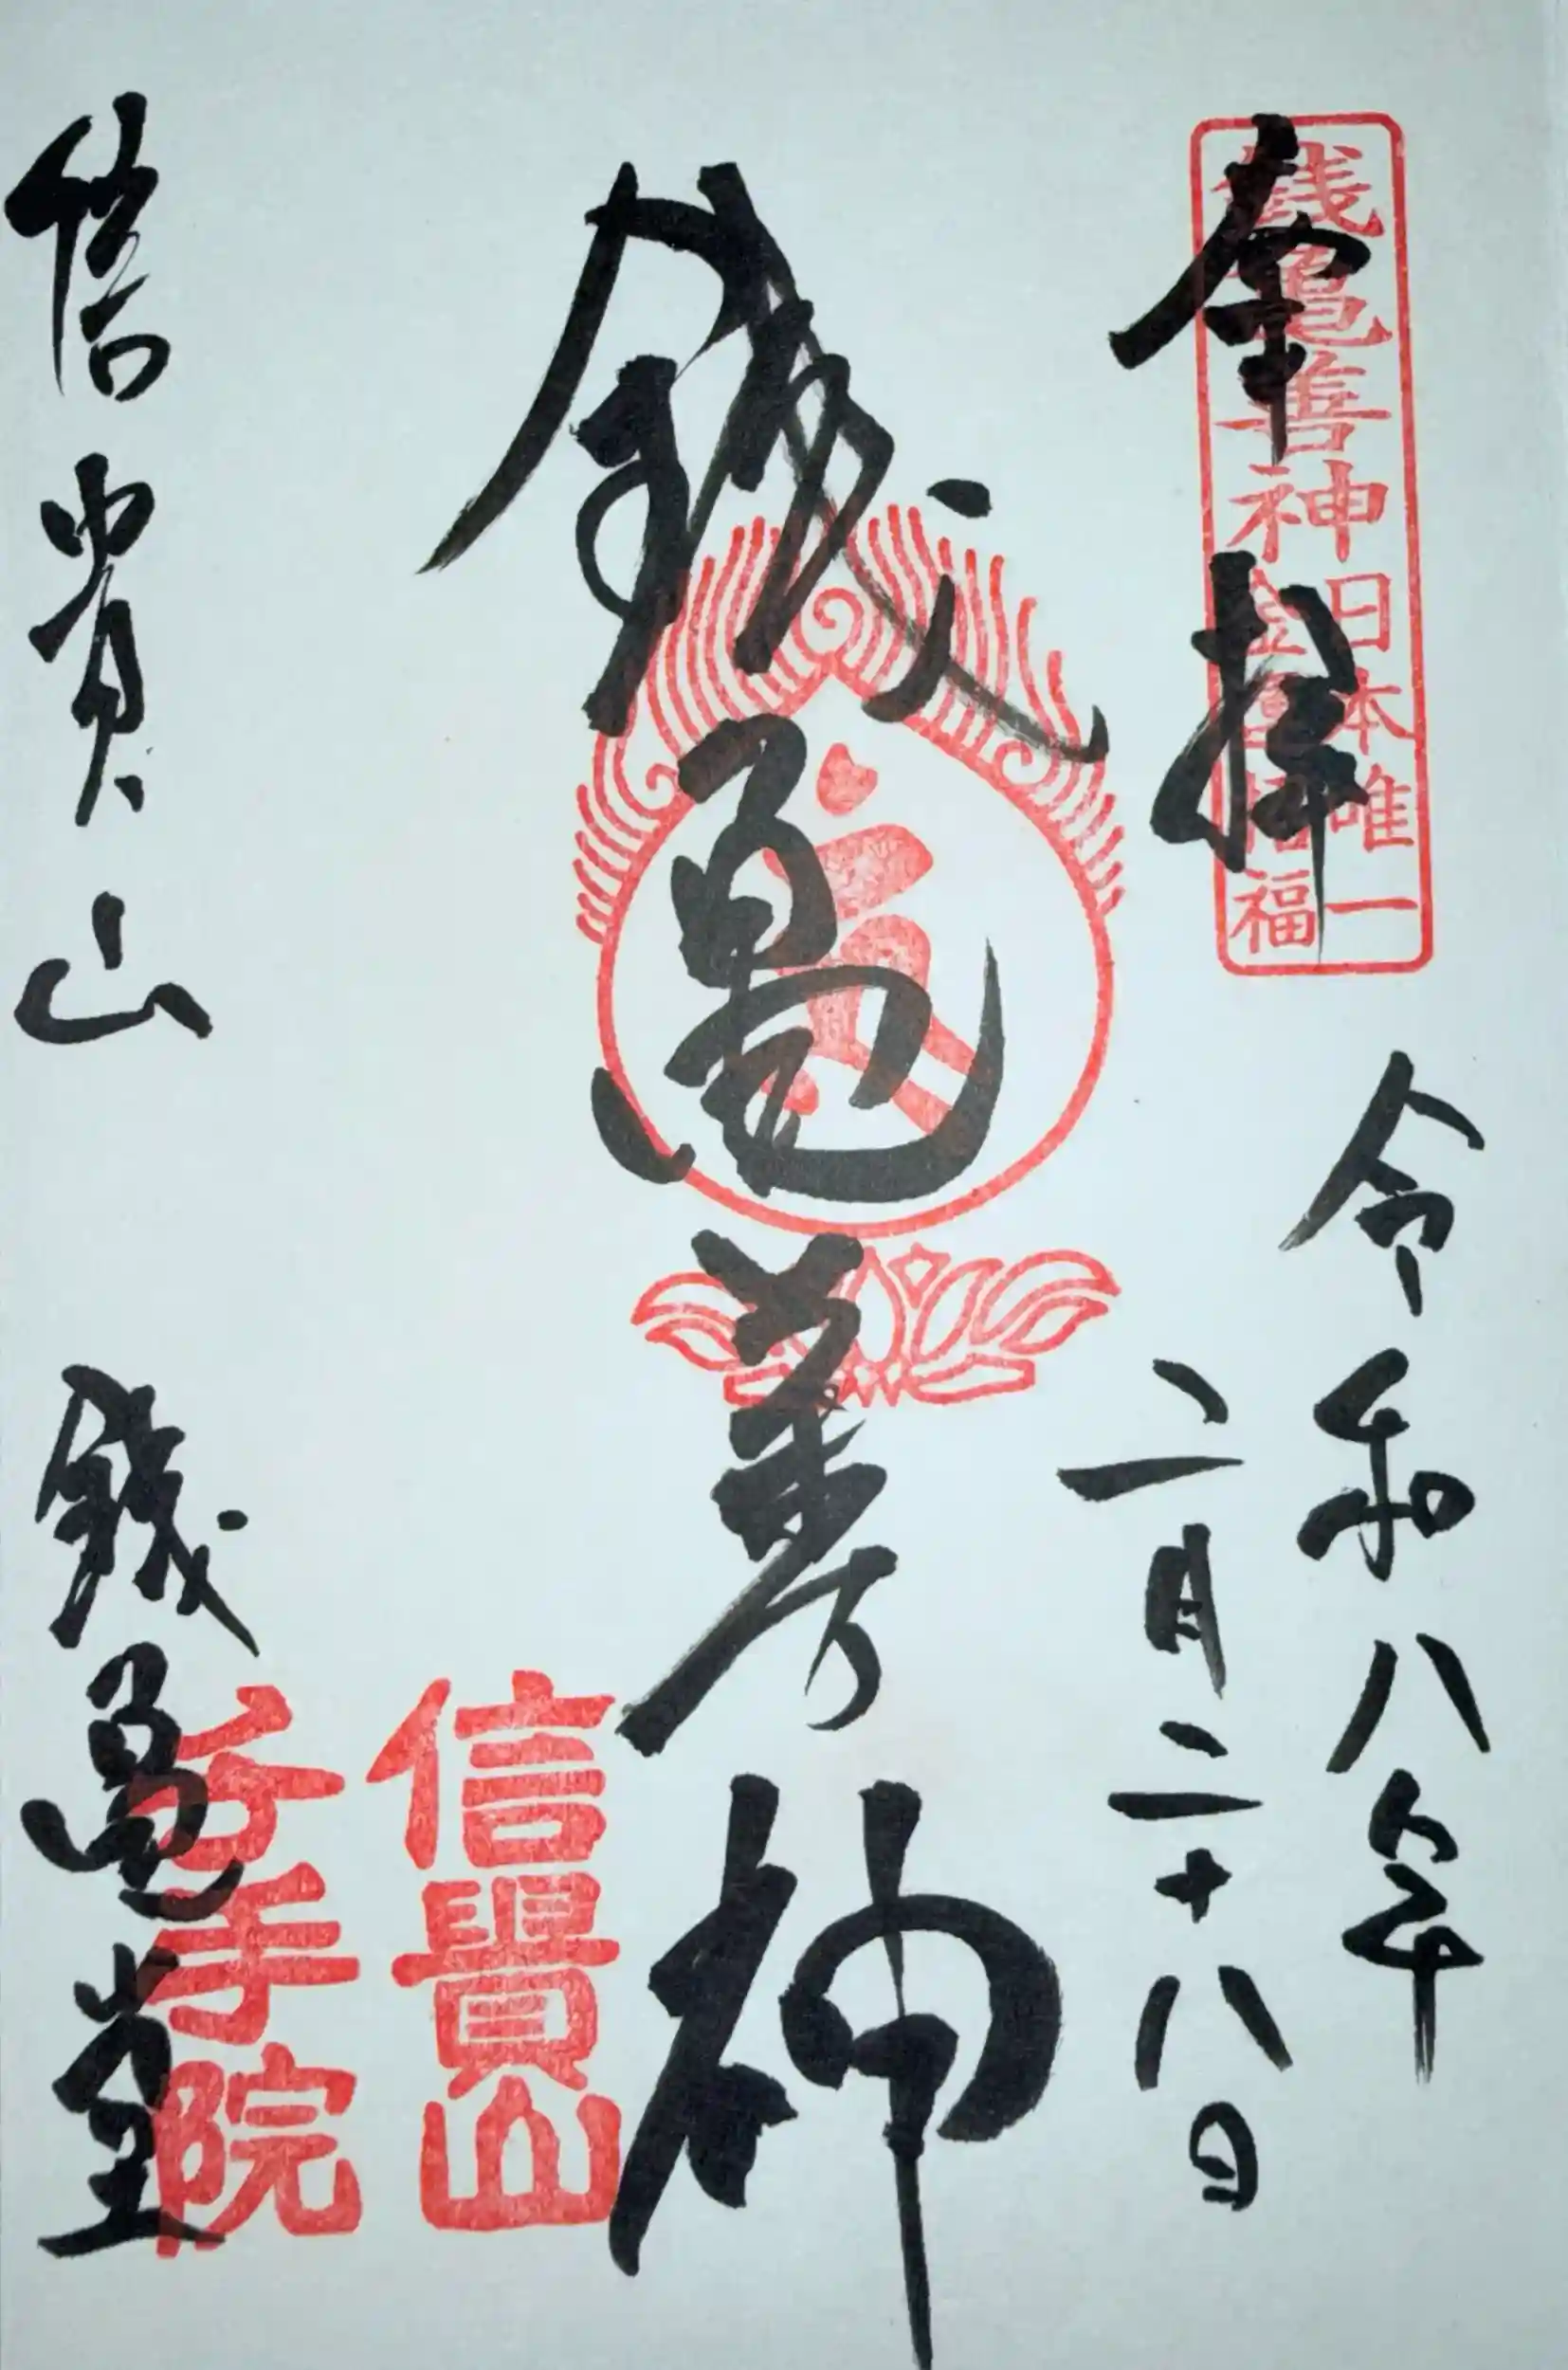 奉拝
銭亀善神
日本唯一
金運招福
令和八年
二月二十八日
銭亀善神
信貴山
千手院
信貴山 銭亀堂